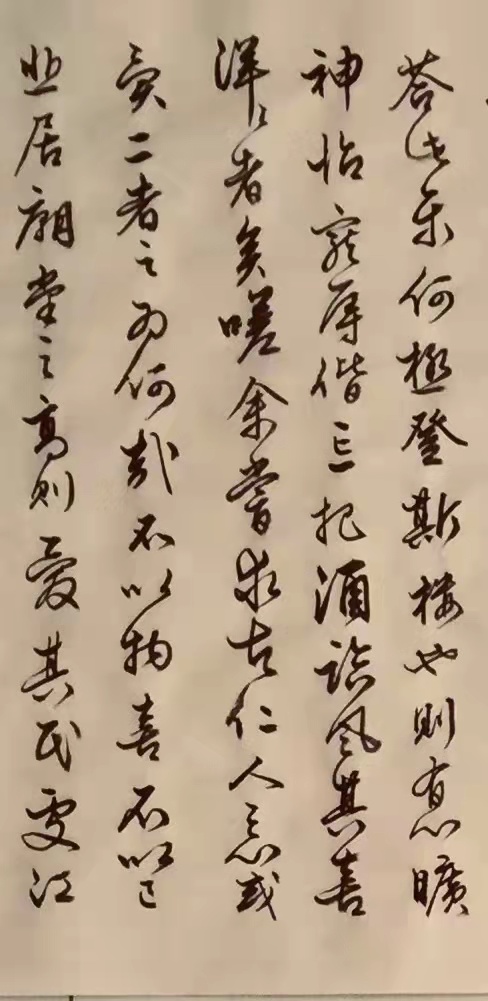 荅此乐何極登斯楼也则有心曠
神怡寵辱偕忘把酒临风其喜
洋洋者矣嗟余嘗求古仁人之心或
異二者之为何哉不以物喜不以己
悲居廟堂之高则憂其民處江